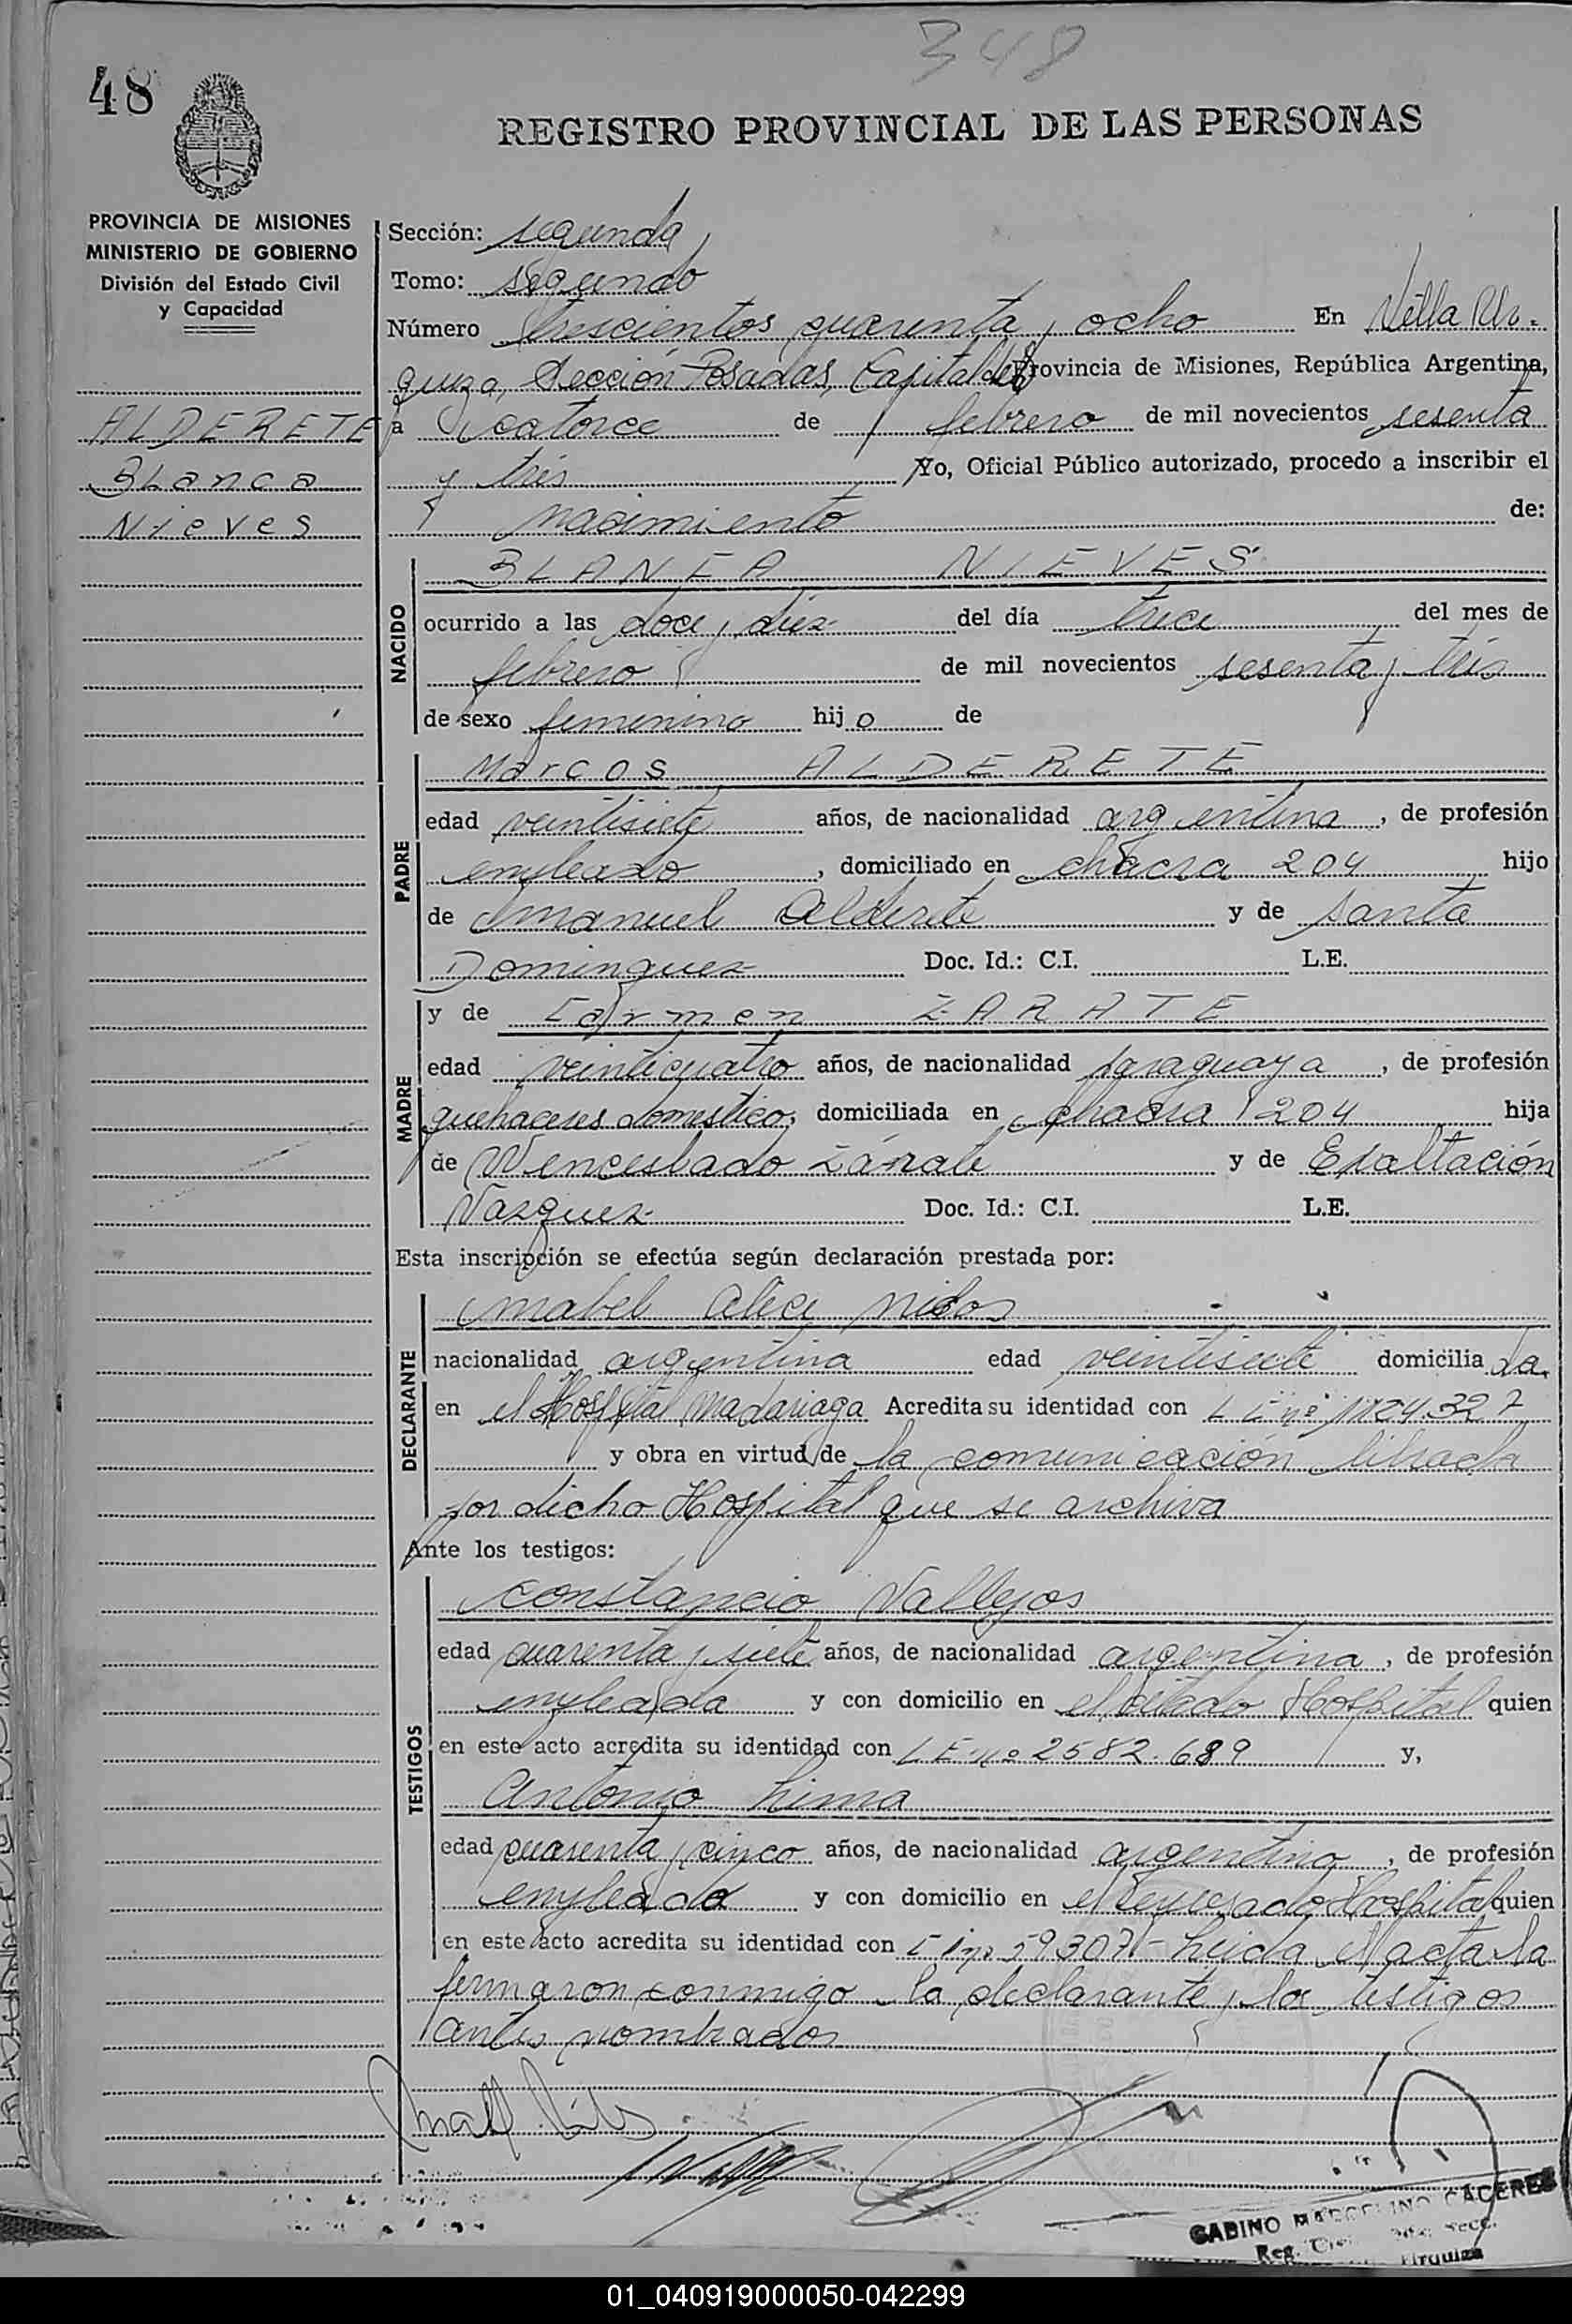 348
48
REGISTRO PROVINCIAL DE LAS PERSONAS
PROVINCIA DE MISIONES
MINISTERIO DE GOBIERNO
División del Estado Civil
y Capacidad
ALDERETE
Blanca
Nieves
Sección: segunda
Tomo: segundo
Número trescientos cuarenta y ocho En Villa Ur-
quiza, Sección Posadas, Capital de la Provincia de Misiones, República Argentina,
a catorce de febrero de mil novecientos sesenta
y tres Yo, Oficial Público autorizado, procedo a inscribir el
nacimiento de:
NACIDO
BLANCA NIEVES
ocurrido a las doce y diez del día trece del mes de
febrero de mil novecientos sesenta y tres
de sexo femenino hijo de
PADRE
Marcos ALDERETE
edad veintisiete años, de nacionalidad argentina, de profesión
empleado, domiciliado en chacra 204 hijo
de Manuel Alderete y de Santa
Dominguez Doc. Id.: C.I. L.E.
MADRE
y de Carmen ZARATE
edad veinticuatro años, de nacionalidad paraguaya, de profesión
quehaceres domestico, domiciliada en chacra 204 hija
de Wenceslado Zárate y de Exaltación
Vazquez Doc. Id.: C.I. L.E.
Esta inscripción se efectúa según declaración prestada por:
DECLARANTE
Mabel Alice
nacionalidad argentina edad veintisiete domiciliada
en el Hospital Madariaga Acredita su identidad con nº
y obra en virtud de la comunicación librada
por dicho Hospital que se archiva
Ante los testigos:
TESTIGOS
Constancio Vallejos
edad cuarenta y siete años, de nacionalidad argentina, de profesión
empleada y con domicilio en el citado Hospital quien
en este acto acredita su identidad con L E nº 2582.689 y,
Antonio Lima
edad cuarenta y cinco años, de nacionalidad argentino, de profesión
empleado y con domicilio en el expresado Hospital quien
en este acto acredita su identidad con C I nº 59307- Leida el acta la
firmaron conmigo la declarante y los testigos
antes nombrados
GABINO MARCELINO CACERES
Reg.
Urquiza
01_040919000050-042299